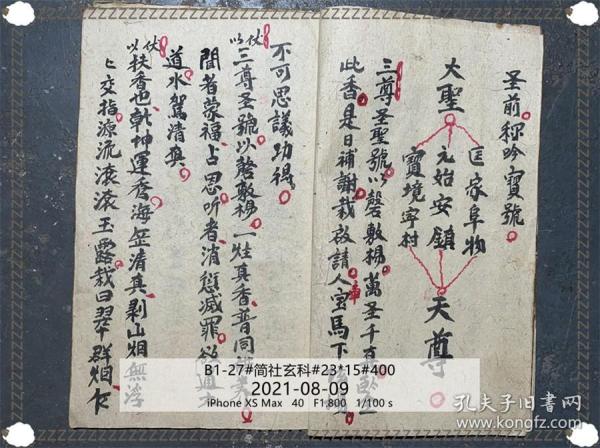 圣前称吟寳號
匡家阜物
大聖元始安鎮天尊
寳境寧村
三尊圣聖號以磬敷揚萬圣千真
此香是日補謝裁啟請人宝馬下
不可思議功德
仗以三尊圣號以磬敷揚一炷真香普同
聞者蒙福占恩听者消愆滅罪
道水駕清真
仗以扶香也乾坤運香海岳清真剥山烟無浮
匕交指源流滾滾玉露裁曰翠群烟
B1-27#简社玄科#23*15#400
2021-08-09
iPhone XS Max 40 F1.800 1/100 s
孔夫子旧书网
www.kongfz.com